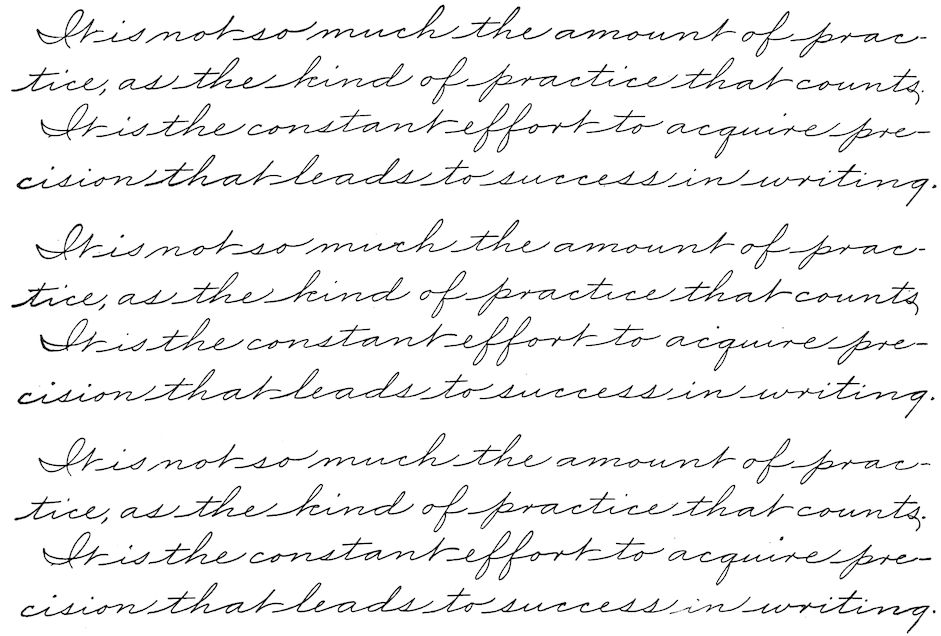 It is not so much the amount of prac-
tice, as the kind of practice that counts.
It is the constant effort to acquire pre-
cision that leads to success in writing.
It is not so much the amount of prac-
tice, as the kind of practice that counts
It is the constant effort to acquire pre-
cision that leads to success in writing.
It is not so much the amount of prac-
tice, as the kind of practice that counts.
It is the constant effort to acquire pre-
cision that leads to success in writing.